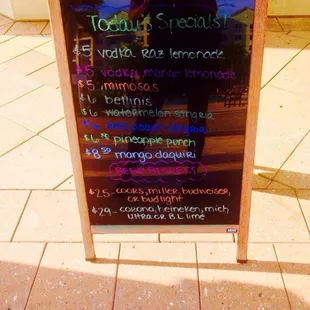 Today's Specials!
$5 vodka Raz lemonade
$5 vodka mango lemonade
$5 mimosas
$6 bellinis
$6 watermelon sangria
$6
$6 pineapple punch
$8 mango daquiri
Beer Buckets
$25- coors, miller, budweiser,
or bud light
$29- corona, heineken, mich
ultra or B.L lime